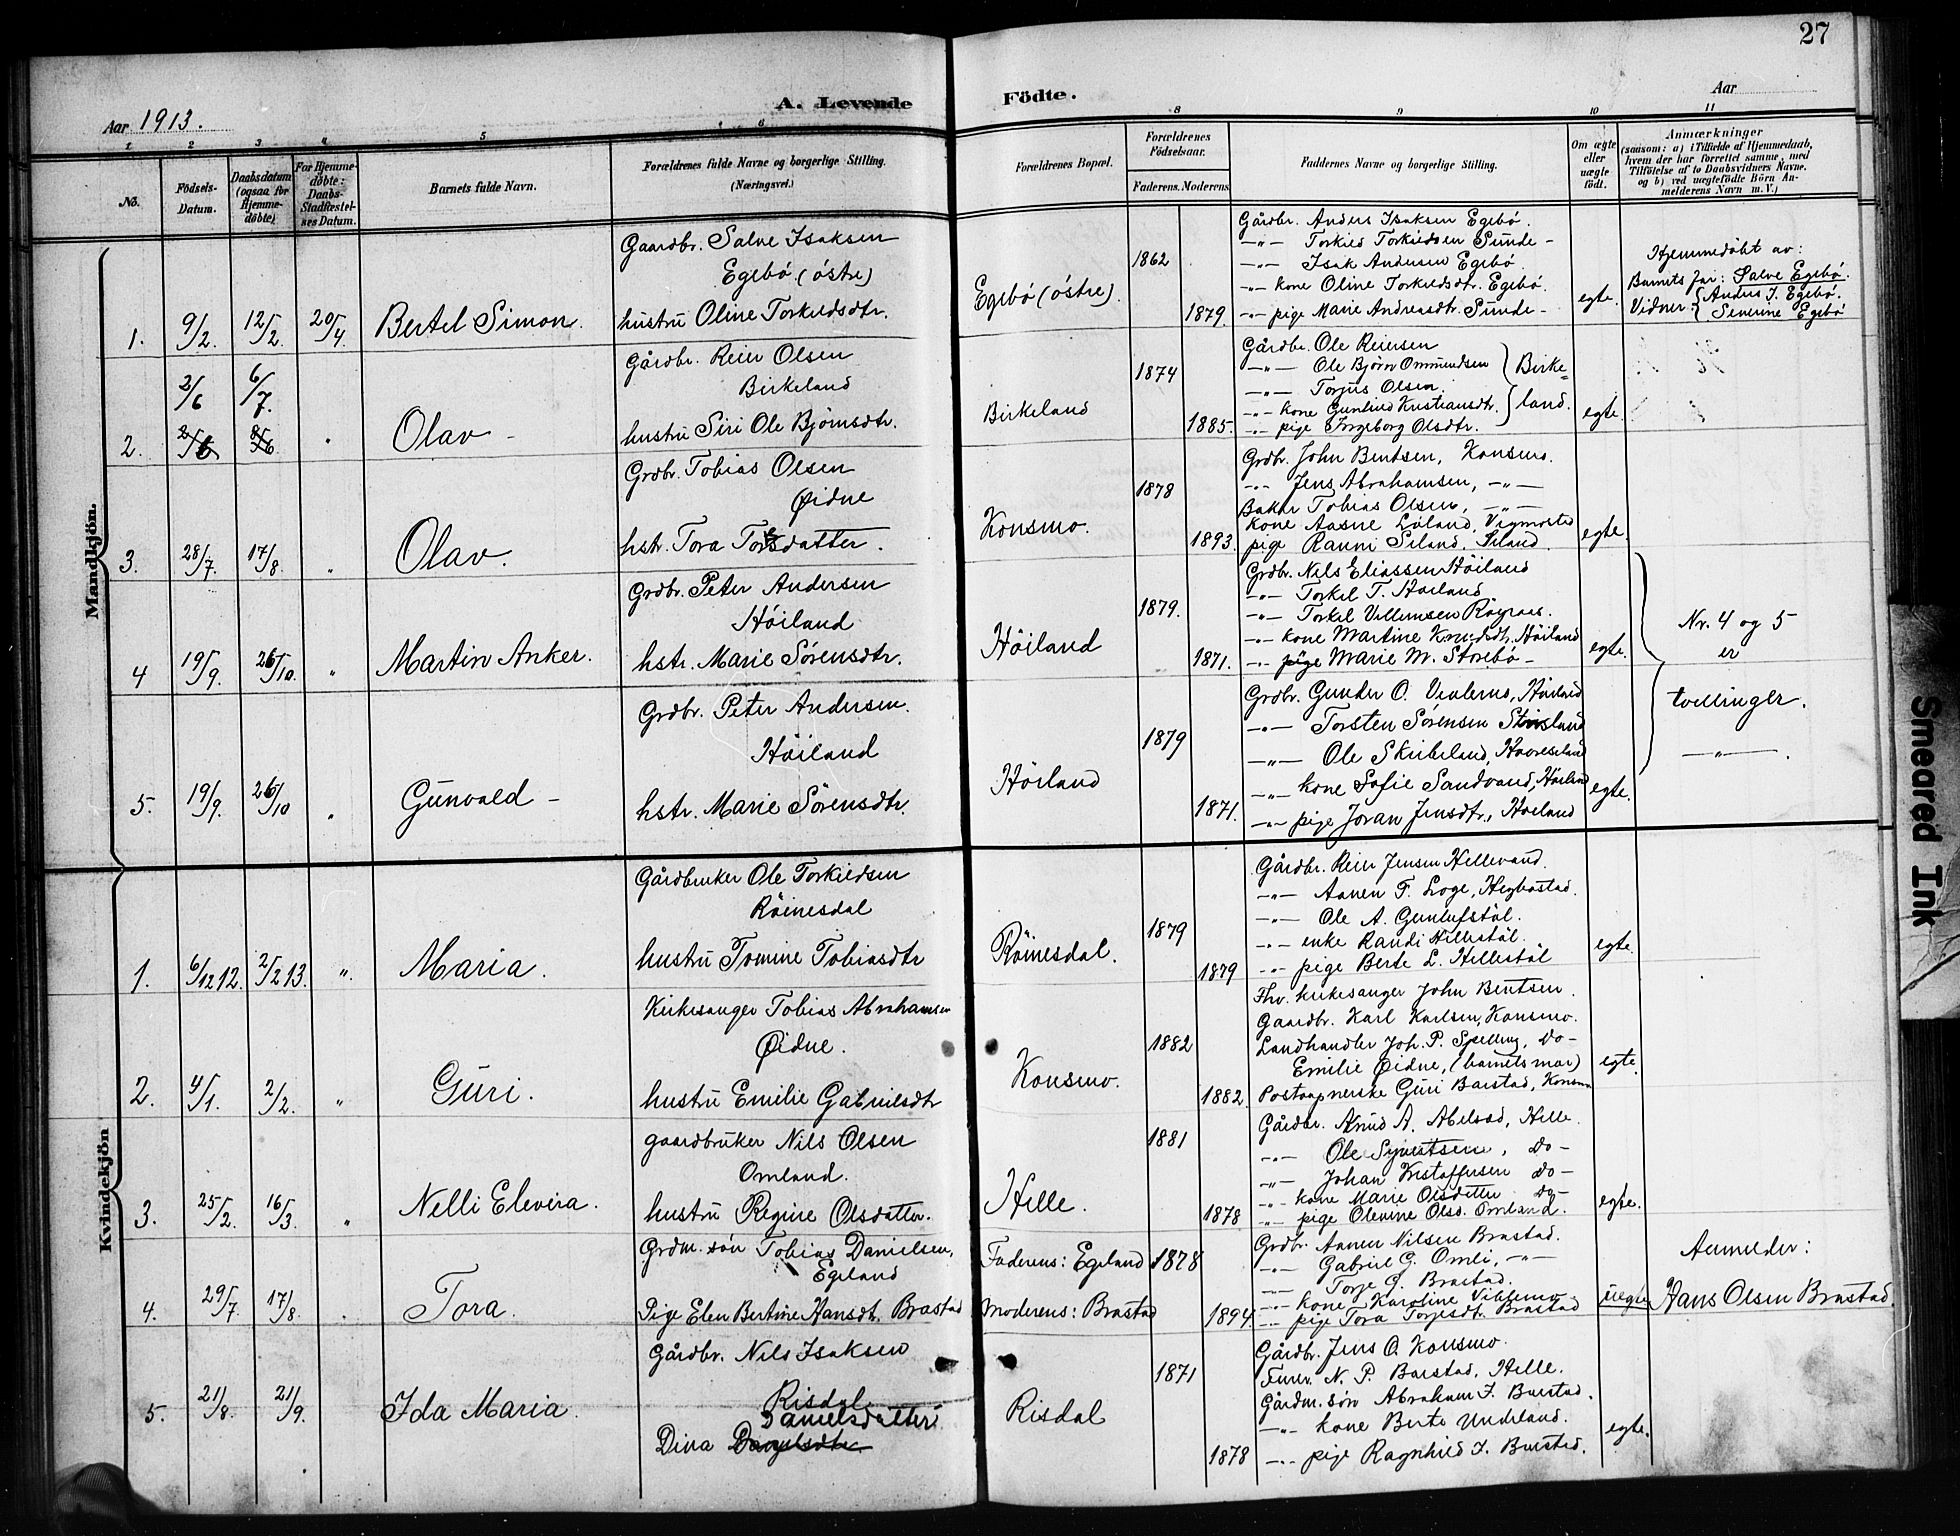 27
Aar 1913.
A. Levende
Födte.
Aar
1 2 3 4 5 6
8 9 10 11
No.
Födsels-Datum.
Daabsdatum (ogsaa for Hjemmedöbte)
For Hjemmedöbte: Daabs Stadfæstelses Datum.
Barnets fulde Navn.
Forældrenes fulde Navne og borgerlige Stilling. (Næringsvei.)
Forældrenes Bopæl.
Forældrenes Födselsaar.
Faderens. Moderens.
Faddernes Navne og borgerlige Stilling.
Om ægte eller uægte födt.
Anmærkninger (saasom: a) i Tilfælde af Hjemmedaab, hvem der har forrettet samme, med Tilföielse af to Daabsvidners Navne. og b) ved uægtefödte Börn Anmelderens Navn m.V.)
Mandkjön.
1. 9/2. 12/2. 20/4 Bertel Simon.
Gaardbr. Salve Isaksen
Egebö (östre)
hustru Oline Torkildsdtr.
Egebö (östre).
1862
1879.
Gårdbr. Anders Isaksen Egebö.
-"- Torkild Torkildsen Sunde -
-"- Isak Andersen Egebö.
-"- kone Oline Torkildsdtr. Egebö.
-"- pige Marie Andreasdtr. Sunde -
egte.
Hjemmedöbt av:
Barnets far: Salve Egebö.
Vidner: Anders I. Egebö.
Severine Egebö
2/6 6/7.
2. 2/6 8/6 " Olav -
Gårdbr. Reier Olsen
Birkeland
hustru Siri Ole Björnsdtr.
Birkeland
1874
1885.
Gårdbr. Ole Reiersen
-"- Ole Björn Ommundsen
-"- Torjus Olsen.
-"- kone Gunhild Kristiansdtr.
-"- pige Ingeborg Olsdtr.
Birkeland.
egte.
3. 28/7. 17/8 " Olav.
Grdbr. Tobias Olsen
Øidne
hstr. Tora Torsdatter.
Konsmo.
1878
1893.
Grdbr. John Bentsen, Konsmo.
-"- Jens Abrahamsen, -"-
Baker Tobias Olsen, -"-
kone Aasne Løland, Vigmostad
pige Ranni Seland, Seland.
egte.
4 19/9. 26/10. " Martin Anker.
Grdbr. Peter Andersen
Höiland
hstr. Marie Sörensdtr.
Höiland
1879.
1871.
Grdbr. Nils Eliassen Höiland
-"- Torkel T. Höiland
-"- Torkel Villumsen
-"- kone Martine Knudsdtr. Höiland
-"- pige Marie M. Storebö -
egte.
Nr. 4 og 5
er
tvillinger.
-"-
5. 19/9. 26/10 " Gunvald -
Grdbr. Peter Andersen.
Höiland
hstr. Marie Sörensdtr.
Höiland
1879
1871.
Grdbr. Gunder O. Höiland
-"- Torsten Sörensen Stensland
-"- Ole Skubeland,
-"- kone Sofie Sandvand, Höiland
-"- pige Joran Jensdtr., Höiland
egte.
Kvindekjön
1. 6/12 12. 2/2 13. ". Maria.
Gårdbruker Ole Torkildsen
Röinesdal
hustru Tomine Tobiasdtr
Röinesdal.
1879
1879
Gårdbr. Reier Jensen Hellevand.
-"- Aanen T. Loge, Hegbostad.
-"- Ole A. Gunlufstöl.
-"- enke Randi Hillestöl.
-"- pige Berte L. Hillestöl
egte.
2. 4/1. 2/2. " Guri.
Kirkesanger Tobias Abrahamsen
Øidne.
hustru Emilie Gabrielsdtr
Konsmo.
1882
1882.
Fhv. kirkesanger John Bentsen.
Gaardbr. Karl Karlsen, Konsmo.
Landhandler Joh. P. Spelling, do -
Emilie Øidne, (barnets mor)
Postaapnerske Guri Barstad, Konsmo
egte.
3. 25/2. 16/3. " Nelli Elevira.
gaardbruker Nils Olsen
Omland.
hustru Regine Olsdatter.
Helle.
1881
1878
Gårdbr. Knud A. Abelsad, Helle.
-"- Ole Syvertsen, do -
-"- Johan Kristoffersen do -
-"- kone Marie Olsdatter do -
-"- pige Olevine Olsd. Omland.
egte.
4. 29/7. 17/8. . Tora.
Grdm. søn Tobias Danielsen,
Egeland
Pige Elen Bertine Hansdt. Brastad
Faderens: Egeland
Moderens: Brastad
1878
1894.
Grdbr. Aanen Nilsen Brastad.
-"- Gabriel G. Omli, -"-
-"- Torje G. Brastad.
-"- kone Karoline Viblemo
-"- pige Tora Torjesdt. Brastad
uegte
Anmelder:
Hans Olsen Brastad.
5. 21/8. 21/9. Ida Maria.
Gårdbr. Nils Isaksen
Risdal
Danielsdatter
Dina
Risdal
1871
1878
Gårdbr. Jens O. Konsmo.
N. P. Barstad, Helle.
Gårdm. søn Abraham I. Barstad.
-"- kone Berte Underland.
-"- pige Ragnhild I. Barstad.
egte.
Smeared Ink